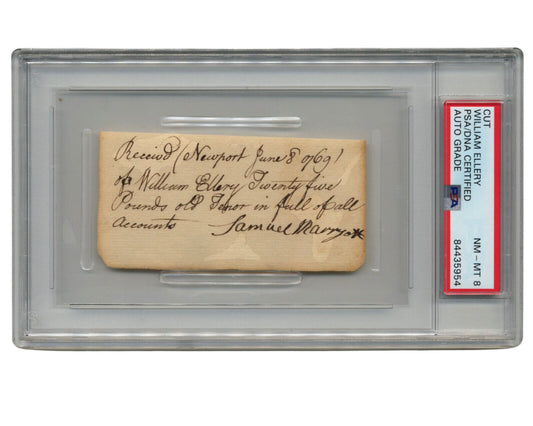 Received (Newport June 8 1769)
of William Ellery Twenty five
Pounds old Tenor in full of all
accounts Samuel
CUT
WILLIAM ELLERY
PSA/DNA CERTIFIED
AUTO GRADE
PSA
NM - MT 8
84435954